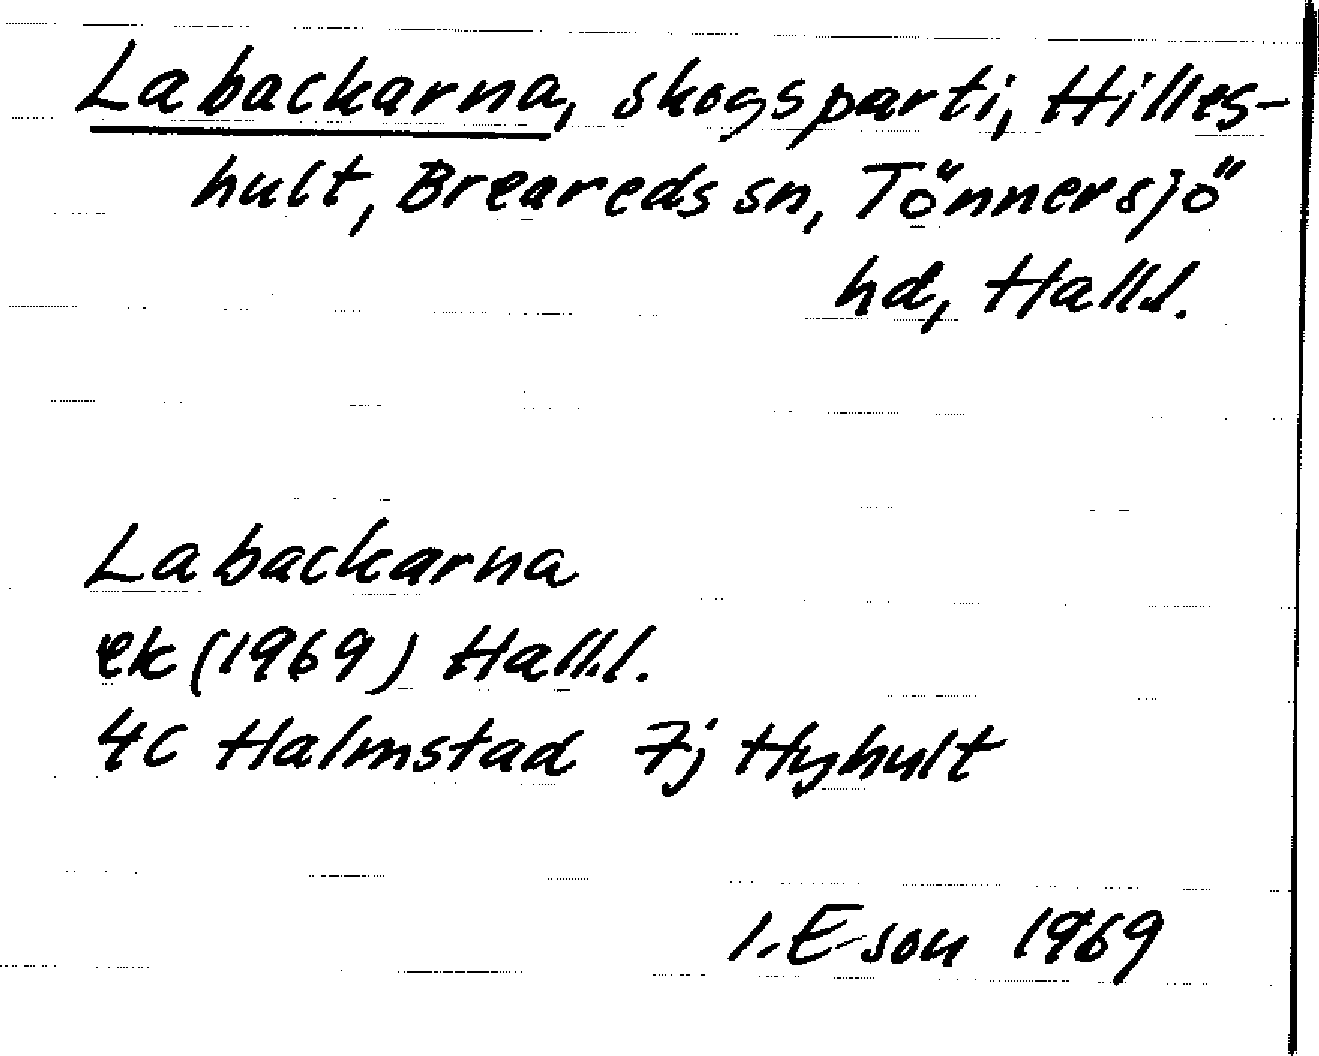 Labackarna, skogsparti, Hilles-
hult, Breareds sn, Tönnersjö
hd, Halll.
Labackarna
ek (1969) Halll.
4C Halmstad 7j Hyhult
I. E-son 1969